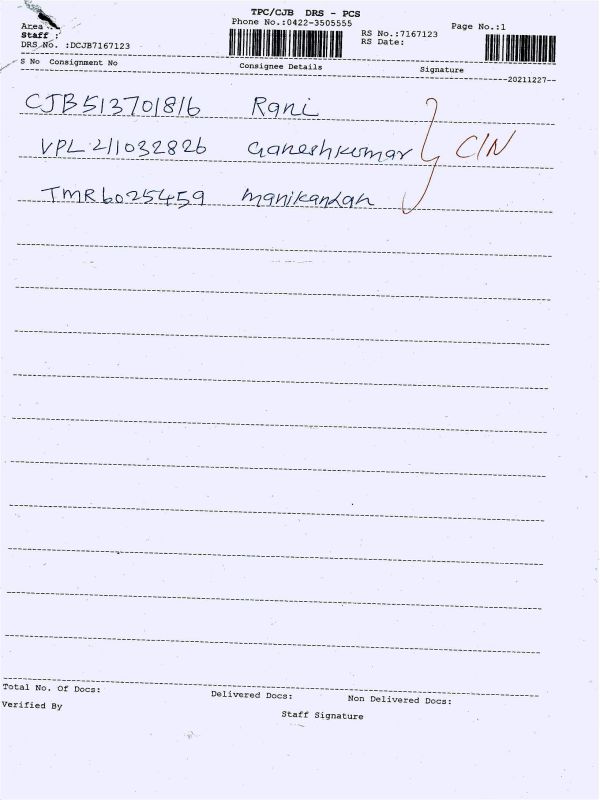 TPC/CJB DRS - PCS
Phone No.:0422-3505555
Area :
Staff :
DRS No. :DCJB7167123
RS No.:7167123
RS Date:
Page No.:1
S No Consignment No Consignee Details Signature
20211227
CJB513701816 Rani
VPL211032826 Ganeshkumar C/N
TMR6025459 Manikandan
Total No. Of Docs: Delivered Docs: Non Delivered Docs:
Verified By Staff Signature